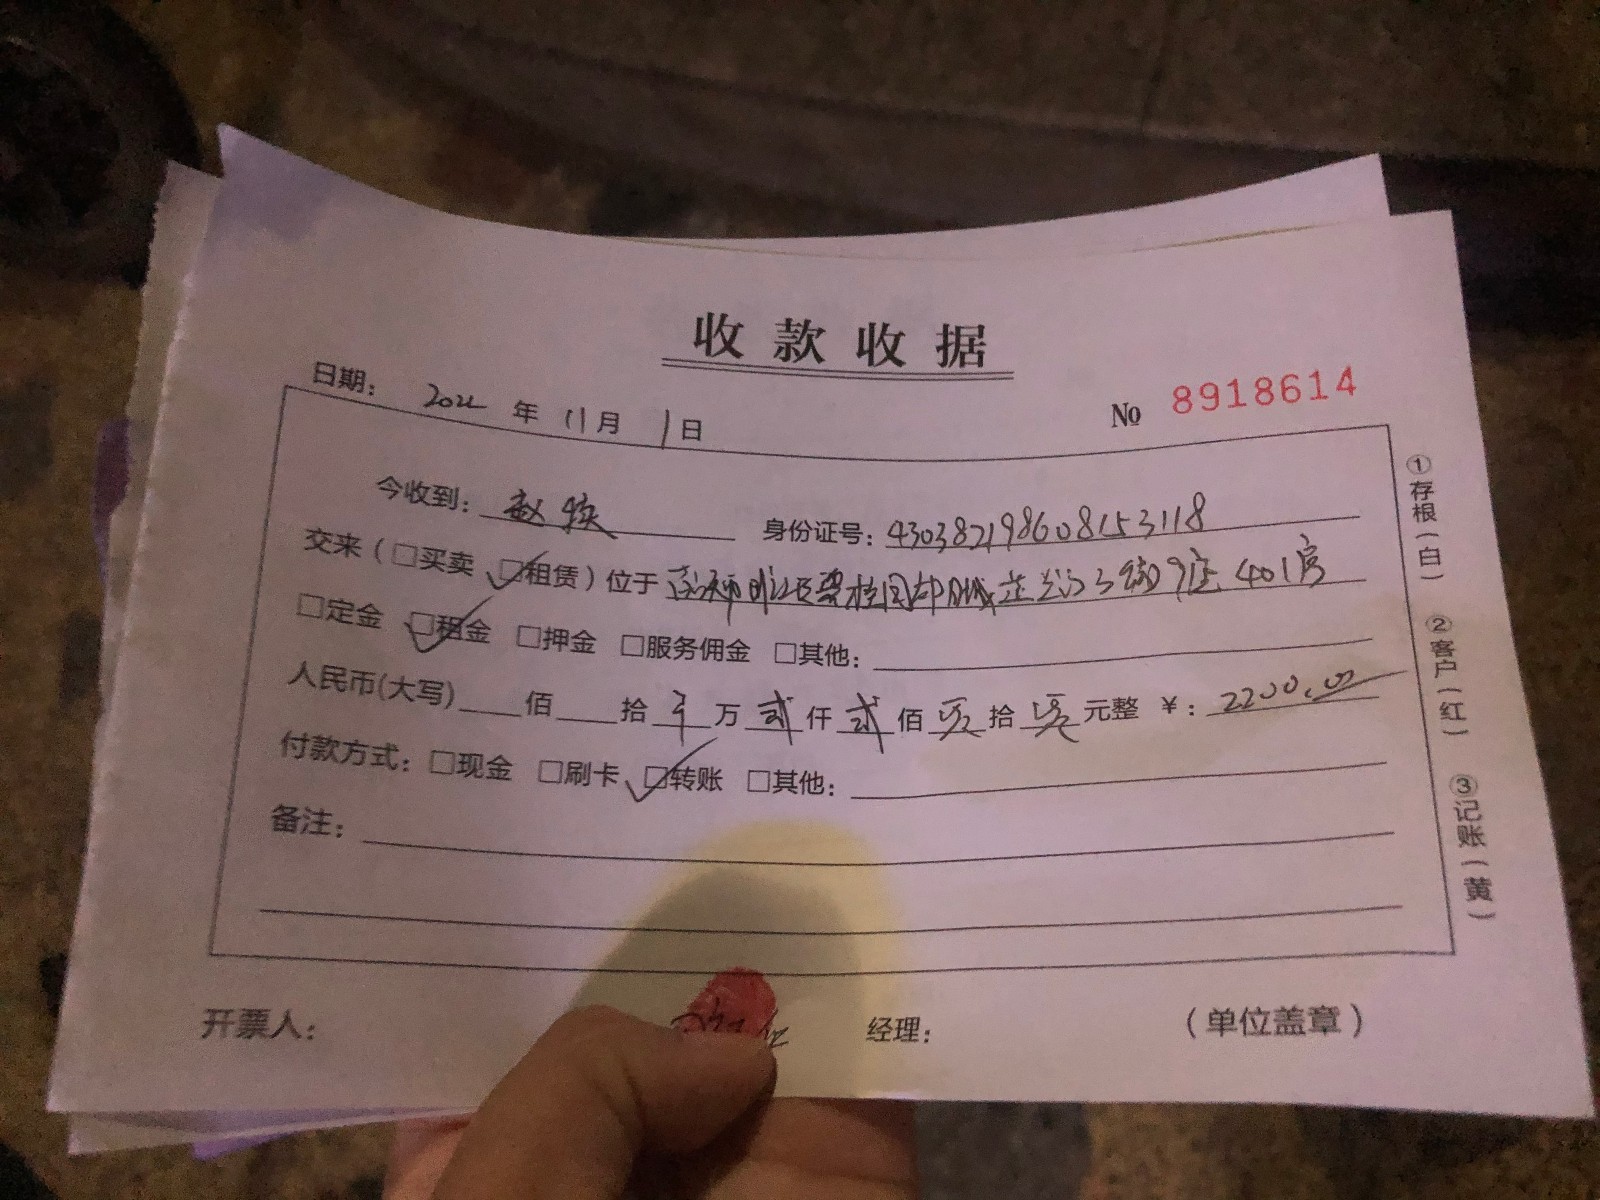 收款收据
日期: 年 11月 1日 № 8918614
今收到: 赵 身份证号: 430382198608153118
交来(□买卖 ☑租赁)位于 401房
□定金 ☑租金 □押金 □服务佣金 □其他:
人民币(大写) 佰 拾 万 贰仟贰佰 拾 元整 ¥: 2200.00
付款方式: □现金 □刷卡 ☑转账 □其他:
备注:
开票人: 经理: (单位盖章)
①存根(白) ②客户(红) ③记账(黄)